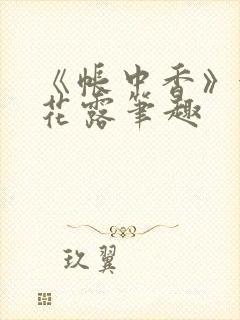 《帐中香》
花露笔趣
玖翼